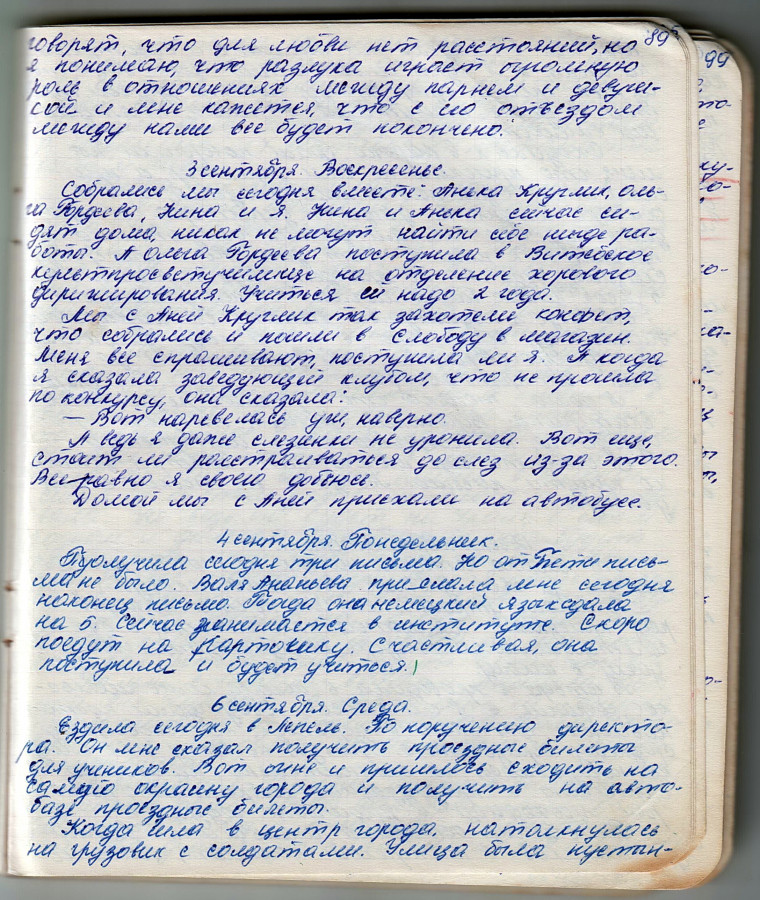 89
говорят, что для любви нет расстояний, но
я понимаю, что разлука играет огромную
роль в отношениях между парнем и девуш-
кой и мне кажется, что с его отъездом
между нами все будет покончено.
3 сентября. Воскресенье.
Собрались мы сегодня вместе: Анека Круглик, Оль-
га Гордеева, Нина и я. Нина и Анека сейчас си-
дят дома, никак не могут найти себе нигде ра-
боты. А Ольга Гордеева поступила в Витебское
культпросветучилище на отделение хорового
дирижирования. Учиться ей надо 2 года.
Мы с Аней Круглик так захотели конфет,
что собрались и пошли в Слободу в магазин.
Меня все спрашивают, поступила ли я. А когда
я сказала заведующей клубом, что не прошла
по конкурсу, она сказала:
— Вот наревелась уж, наверно.
А ведь я даже слезинки не уронила. Вот еще,
стоит ли расстраиваться до слез из-за этого.
Все равно я своего добьюсь.
Домой мы с Аней приехали на автобусе.
4 сентября. Понедельник.
Получила сегодня три письма. Но от Пети пись-
ма не было. Валя Ананьева прислала мне сегодня
наконец письмо. Тогда она немецкий язык сдала
на 5. Сейчас занимается в институте. Скоро
поедут на картошку. Счастливая, она
поступила и будет учиться.
6 сентября. Среда.
Ездила сегодня в Лепель. По поручению директо-
ра. Он мне сказал получить проездные билеты
для учеников. Вот мне и пришлось сходить на
самую окраину города и получить на авто-
базе проездные билеты.
Когда шла в центр города, натолкнулась
на грузовик с солдатами. Улица была пустын-
99